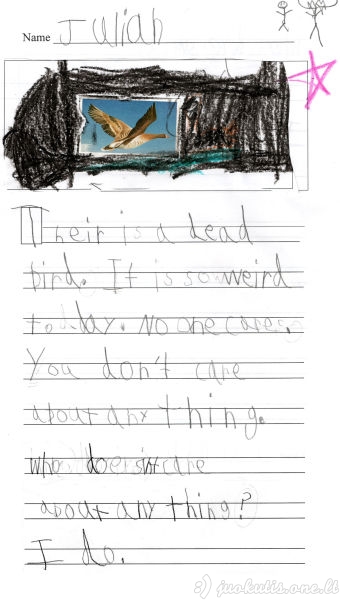 Name Juliah
Their is a dead
bird. It is so weird
today. No one cares.
You don't care
about any thing.
who doesn't care
about any thing?
I do.
:) juokulis.one.lt